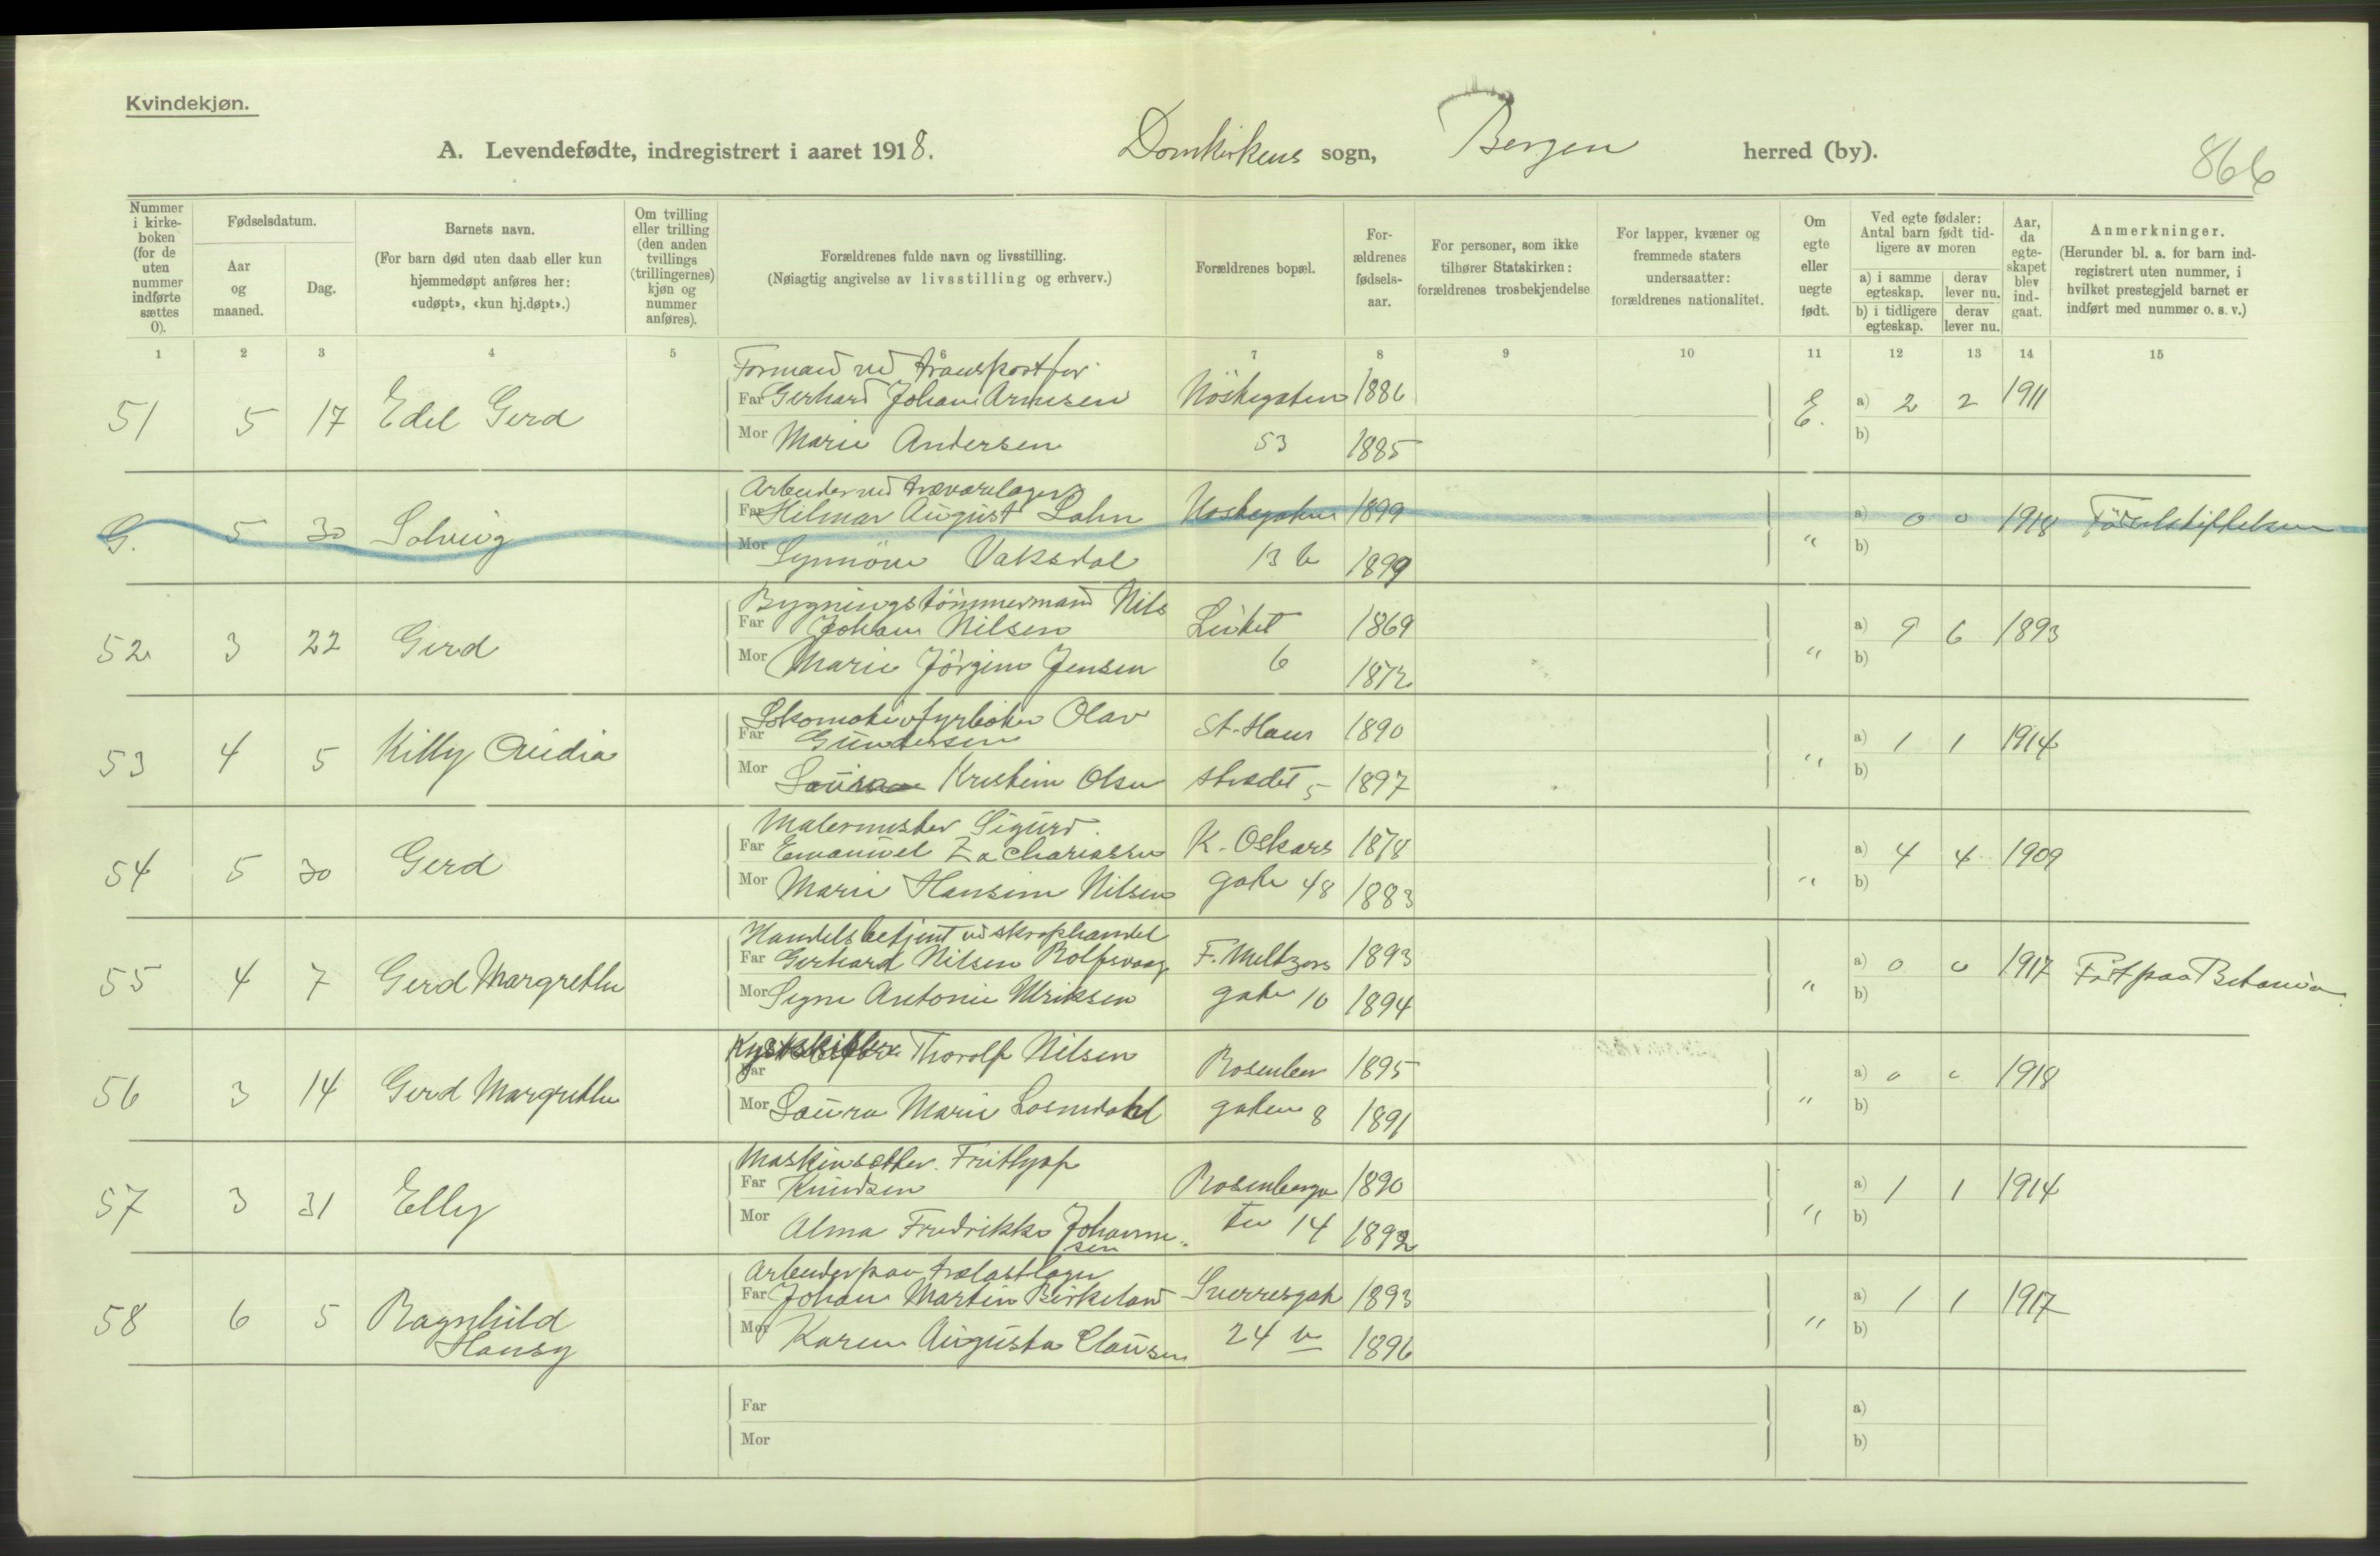 Kvindekjøn.
A. Levendefødte, indregistrert i aaret 1918. Domkirkens sogn, Bergen herred (by). 866
Nummer i kirkeboken (for de uten nummer indførte sættes 0).
Fødselsdatum.
Aar og maaned.
Dag.
Barnets navn.
(For barn død uten daab eller kun hjemmedøpt anføres her: «udøpt», «kun hj.døpt».)
Om tvilling eller trilling (den anden tvillings (trillingernes) kjøn og nummer anføres).
Forældrenes fulde navn og livsstilling.
(Nøiagtig angivelse av livsstilling og erhverv.)
Forældrenes bopæl.
For-ældrenes fødsels-aar.
For personer, som ikke tilhører Statskirken: forældrenes trosbekjendelse
For lapper, kvæner og fremmede staters undersaatter: forældrenes nationalitet.
Om egte eller uegte født.
Ved egte fødsler: Antal barn født tid-ligere av moren
a) i samme egteskap. derav lever nu.
b) i tidligere egteskap. derav lever nu.
Aar, da egte-skapet blev ind-gaat.
Anmerkninger.
(Herunder bl. a. for barn ind-registrert uten nummer, i hvilket prestegjeld barnet er indført med nummer o. s. v.)
1 2 3 4 5 6 7 8 9 10 11 12 13 14 15
Formand ved transportfor
51 5 17 Edel Gerd Far Gerhard Johan Arnesen Nöstegaten 1886 E. a) 2 2 1911
Mor Marie Andersen 53 1885 b)
Arbeider ved trævarelager
G. 5 30 Solveig Far Hilmar August Lahn Nöstegaten 1899 " a) 0 0 1918 Födselsstiftelsen
Mor Synnöve Vaksdal 13 b 1899 b)
Bygningstömmermand Nils
52 3 22 Gerd Far Johan Nilsen 1869 " a) 9 6 1893
Mor Marie Jörgine Jensen 6 1872 b)
Lokomotivfyrböter Olav
53 4 5 Killy Far Gundersen St. Hans 1890 " a) 1 1 1914
Mor Kristine Olsen strædet 5 1897 b)
Malermester Sigurd
54 5 30 Gerd Far Emanuel Zachariassen K. Oskars 1878 " a) 4 4 1909
Mor Marie Hansine Nilsen gate 48 1883 b)
Handelsbetjent ved skraphandel
55 4 7 Gerd Margrethe Far Gerhard Nilsen Rolfsvaag F. Meltzers 1893 " a) 0 0 1917 Födt paa Betanien
Mor Signe Antonie Ulriksen gate 10 1894 b)
Kystskipper Thorolf Nilsen
56 3 14 Gerd Margrethe Far Rosenber 1895 " a) 0 0 1918
Mor Laura Marie gaten 8 1891 b)
Maskinsætter Frithjof
57 3 31 Elly Far Knudsen Rosenberga 1890 " a) 1 1 1914
Mor Alma Fredrikke Johanne- ten 14 1892 b)
sen
Arbeider paa trælastlager
58 6 5 Ragnhild Far Johan Martin Birkeland Sverresgate 1893 " a) 1 1 1917
Hansy Mor Karen Augusta Clausen 24 b 1896 b)
Far a)
Mor b)